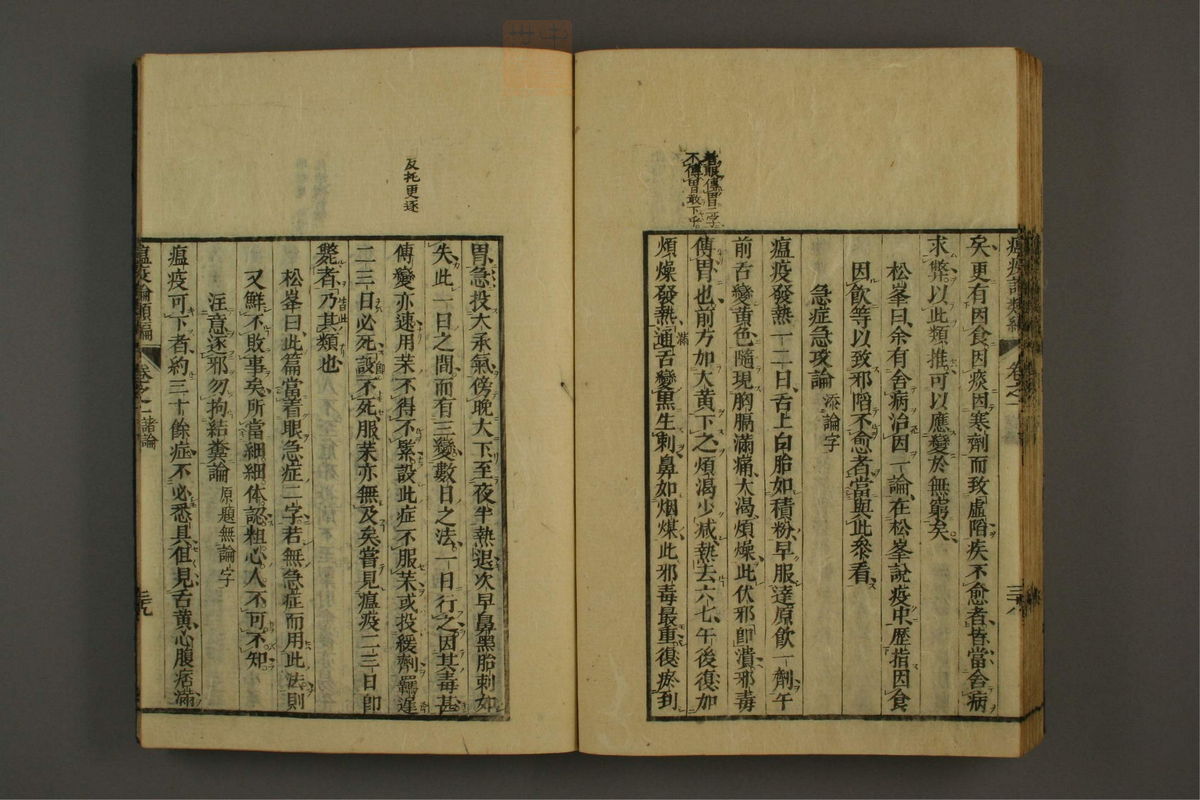 瘟疫論類編 卷之一 三十八
矣更有因食因痰因寒劑而致虛陷疾不愈者皆當舍病
求弊以此類推可以應變於無窮矣
松峯曰余有舍病治因一論在松峯說疫中歷指因食
因飲等以致邪陷不愈者當與此叅看
急症急攻論 添論字
瘟疫發熱一二日舌上白胎如積粉早服達原飲一劑午
前舌變黃色隨現胸膈滿痛大渴煩燥此伏邪卽潰邪毒
傳胃也前方加大黃下之煩渴少減熱去六七午後復加
煩燥發熱通舌變黑生刺鼻如烟煤此邪毒最重復瘀到
着眼傳胃二字
不傳胃敢下乎
胃急投大承氣傍晚大下至夜半熱退次早鼻黑胎刺如
失此一日之間而有三變數日之法一日行之因其毒甚
傳變亦速用茱不得不緊設此症不服茱或投緩劑羈遲
二三日必死設不死服茱亦無及矣嘗見瘟疫二三日卽
斃者乃其類也
松峯曰此篇當着眼急症二字若無急症而用此法則
又鮮不敗事矣所當細細体認粗心人不可不知
注意逐邪勿拘結糞論 原題無論字
瘟疫可下者約三十餘症不必悉具但見舌黃心腹痞滿
反托更逐
瘟疫論類編 卷之一 諸論 三十九